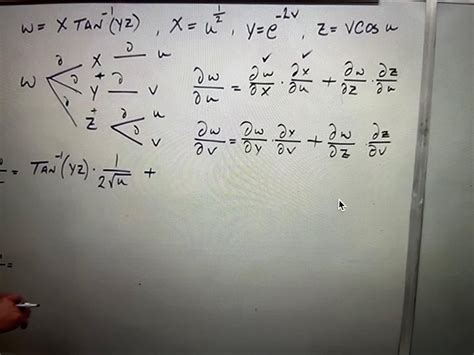 W = X TAN⁻¹(YZ) , X = u^(1/2) , Y = e^(-2v) , Z = V COS u
W ∂ X ∂ u
∂ Y ∂ v
∂ Z ∂ u
∂ v
∂w/∂u = ∂w/∂x · ∂x/∂u + ∂w/∂z · ∂z/∂u
∂w/∂v = ∂w/∂y · ∂y/∂v + ∂w/∂z · ∂z/∂v
= TAN⁻¹(YZ) · 1/(2√u) +
=